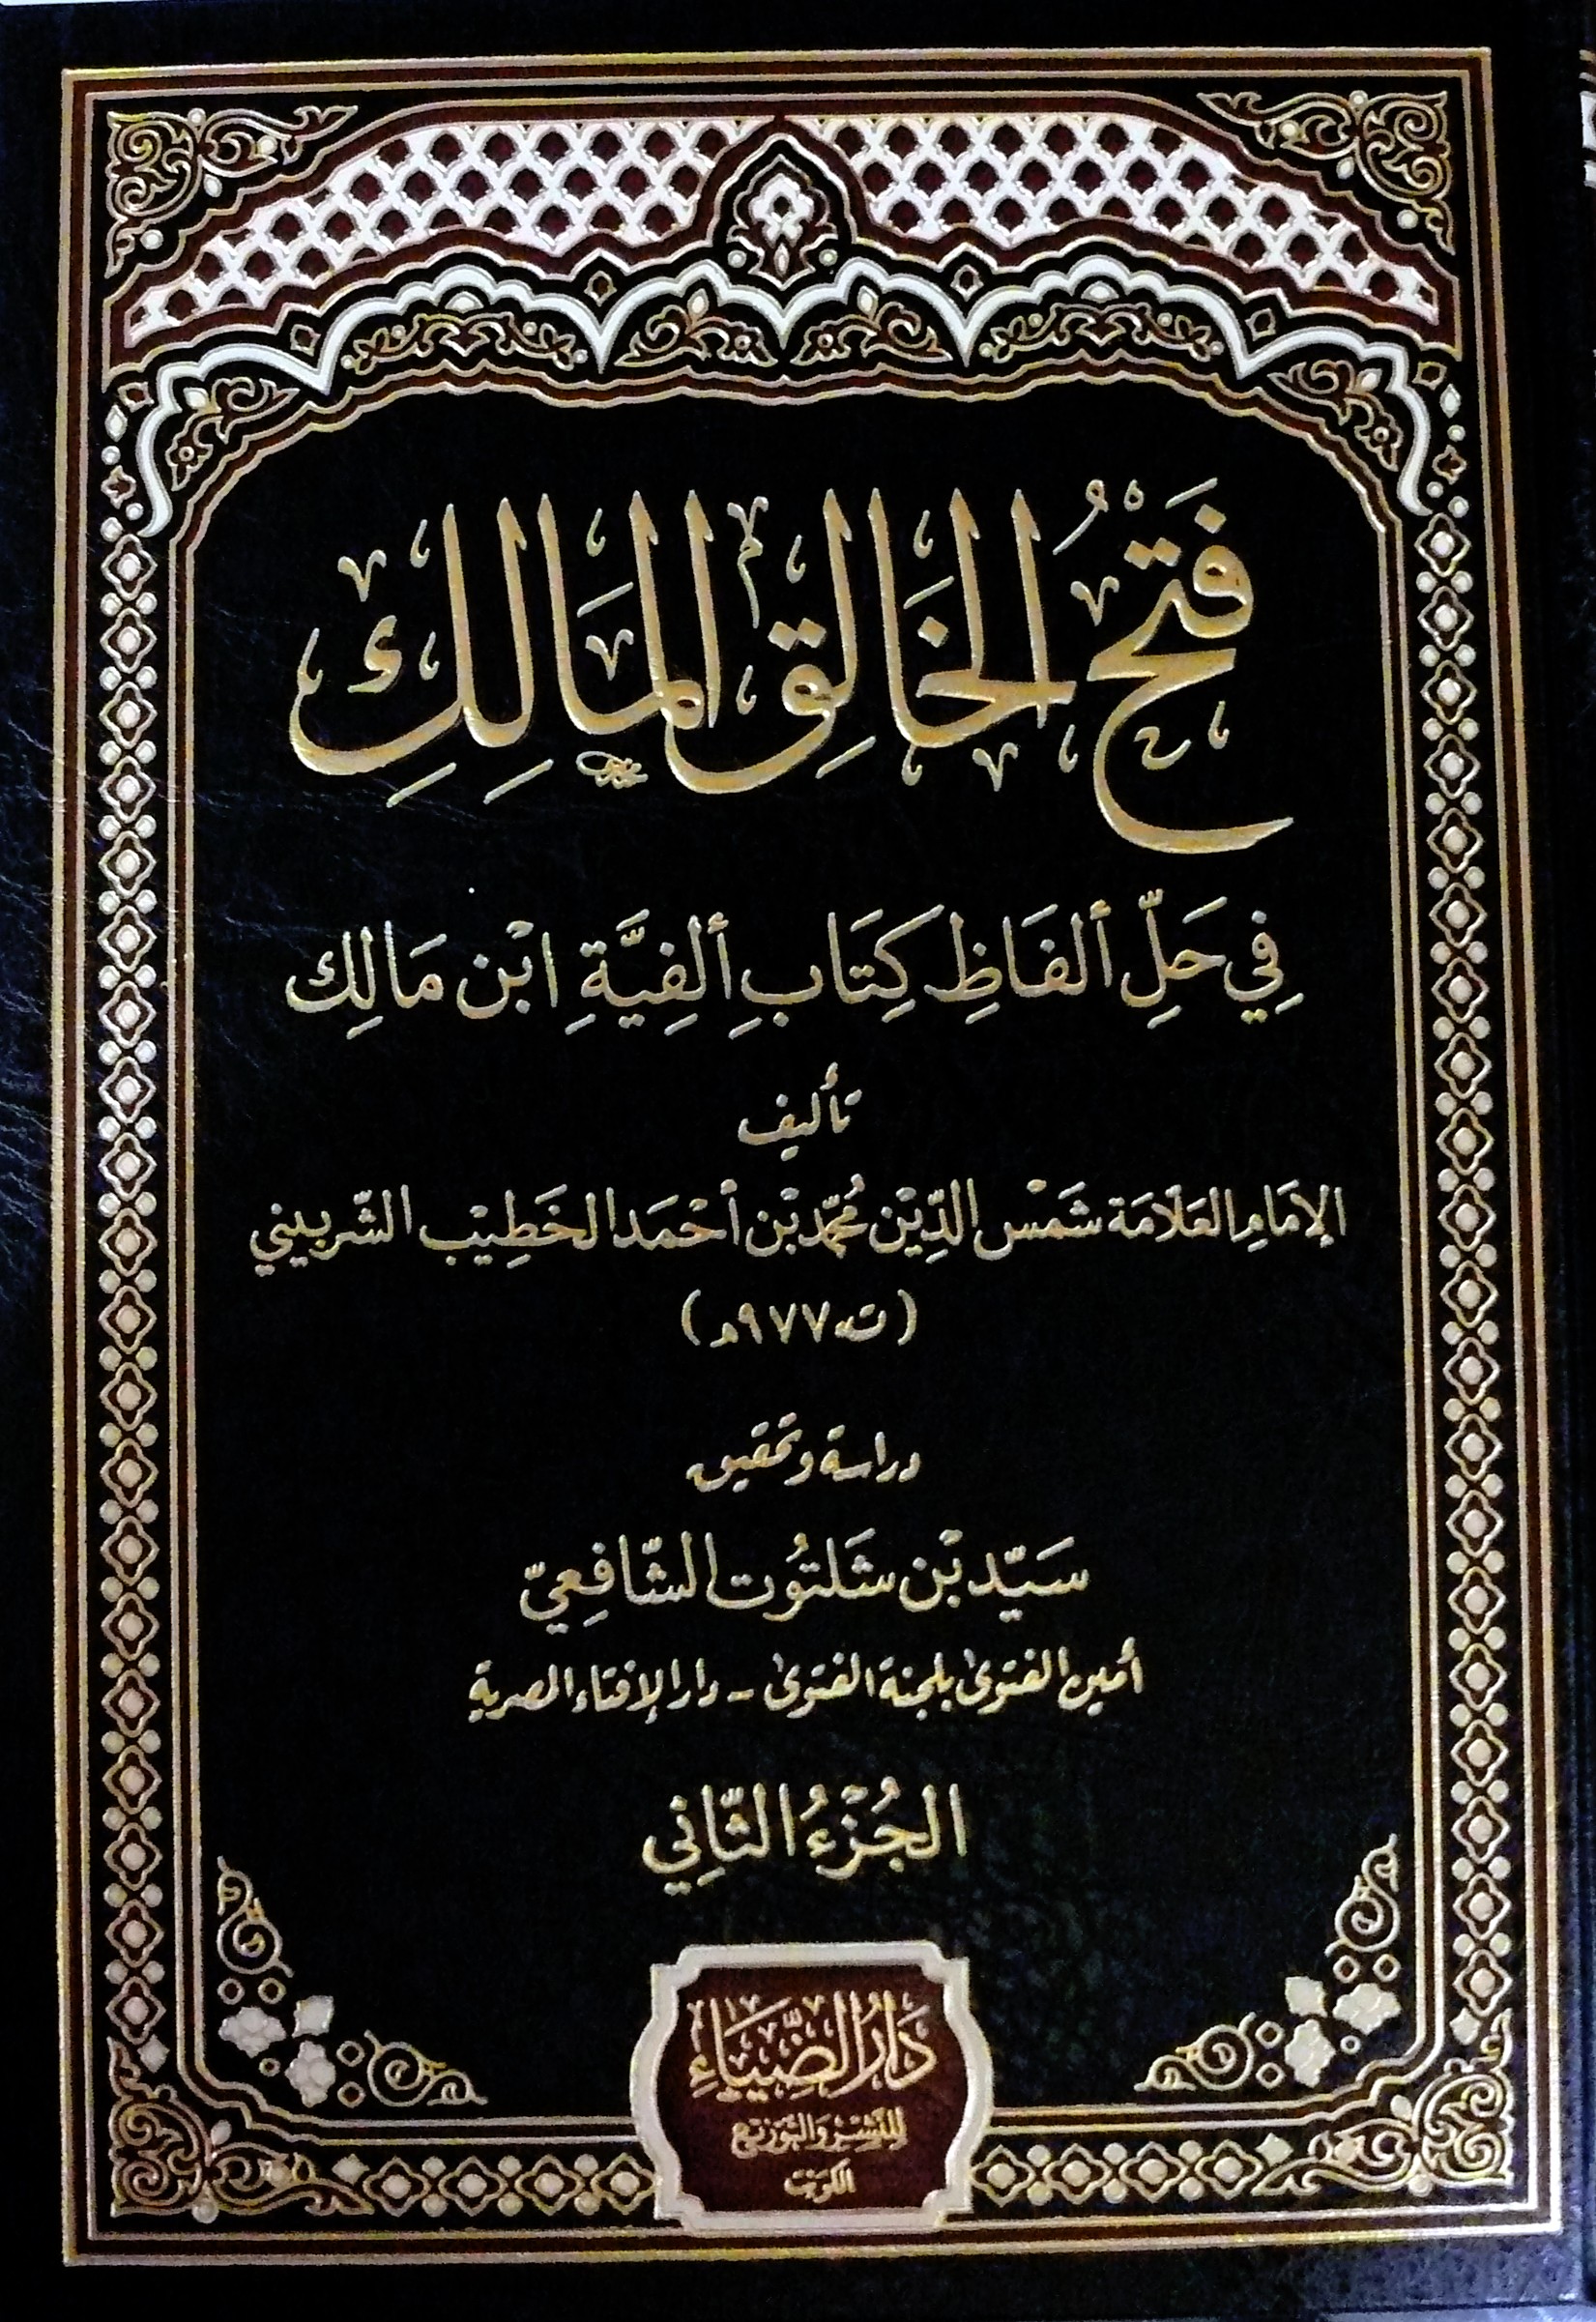 فَتْحُ الخَالِقِ المَالِكِ
فِي حَلِّ ألفَاظِ كِتَابِ ألفِيَّةِ ابْن مَالِك
تأليف
الإمَامِ العَلّامَة شَمْس الدِّيْن مُحَمَّد بْن أحْمَد الخَطِيْب الشّربيني
(ت ٩٧٧هـ)
دراسة وتحقيق
سَيِّد بْن شَلتُوت الشَّافِعِيّ
أمين الفتوى بلجنة الفتوى - دار الإفتاء المصرية
الجُزْءُ الثَّانِي
دَارُ الضِّيَاءِ
للنَّشْرِ وَالتَّوزيع
الكويت